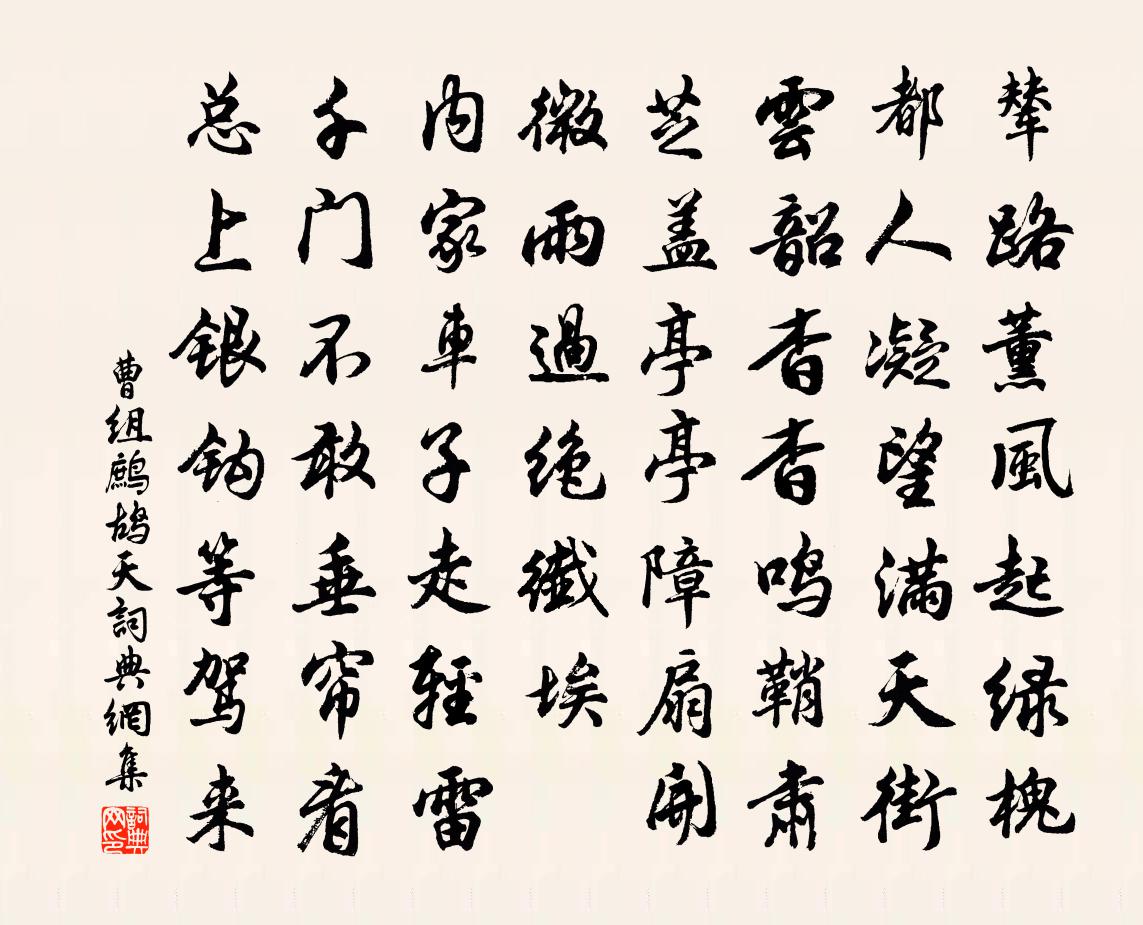 輦路薰風起绿槐
都人凝望满天街
雲韶杳杳鸣鞘肃
芝盖亭亭障扇開
微雨過绝纖埃
内家車子走輕雷
千门不敢垂帘看
总上银钩等驾来
曹组鹧鸪天詞典網集
詞典网印